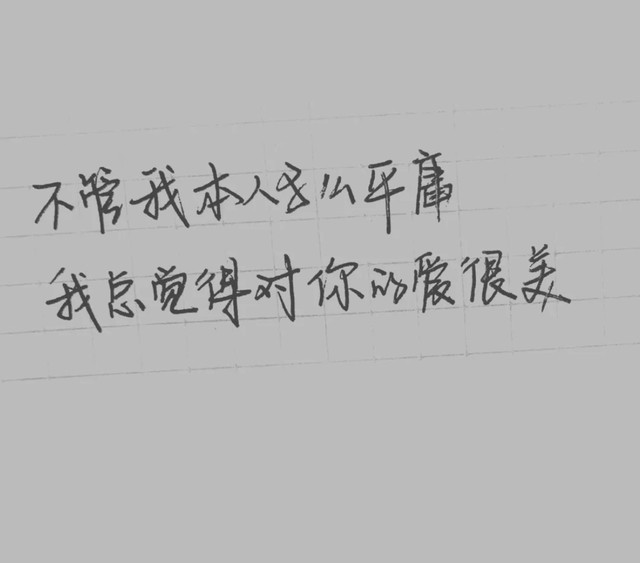 不管我本人多么平庸
我总觉得对你的爱很美